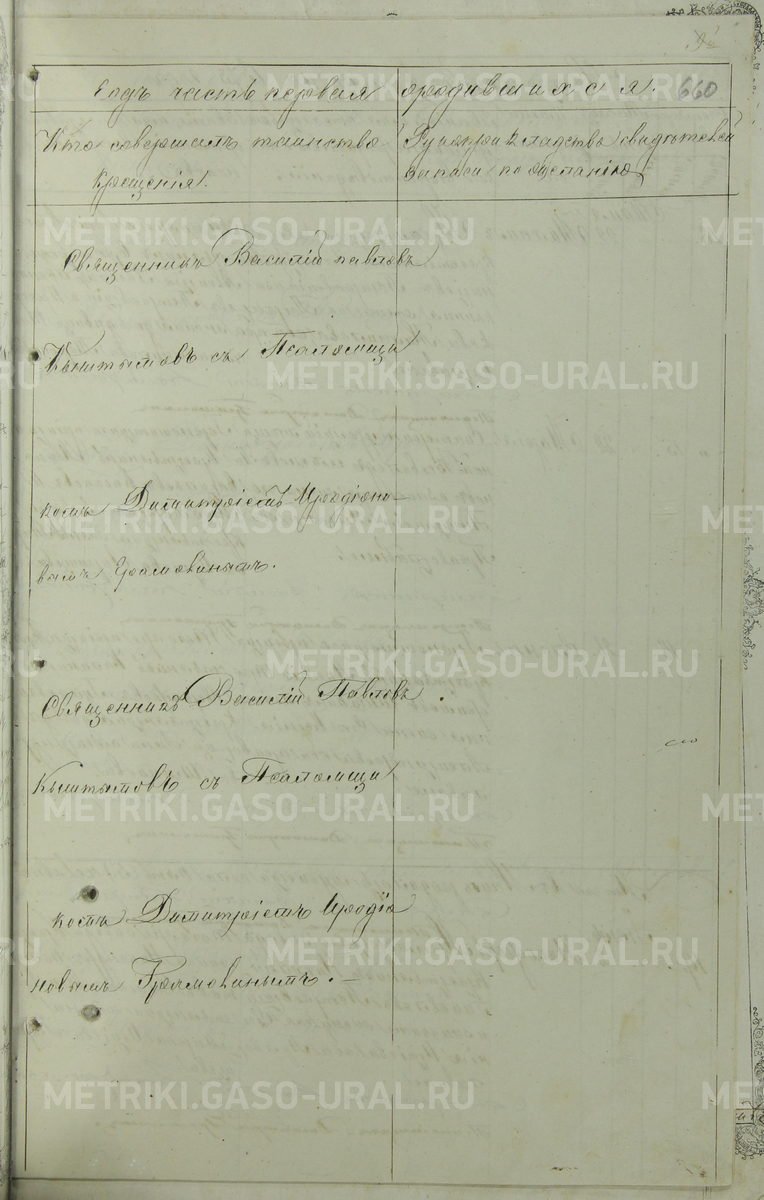 660
Годъ часть первая
о родившихся.
Кто совершалъ таинство
крещенія.
свидѣтелей
записи по желанію
Священникъ Василій Павловъ
Кыштымовъ съ Псаломщи
комъ Димитріемъ Иродіоно-
вымъ Громовинымъ.
Священникъ Василій Павловъ
Кыштымовъ съ Псаломщи
комъ Димитріемъ Иродіо
новымъ Громовинымъ.
METRIKI.GASO-URAL.RU